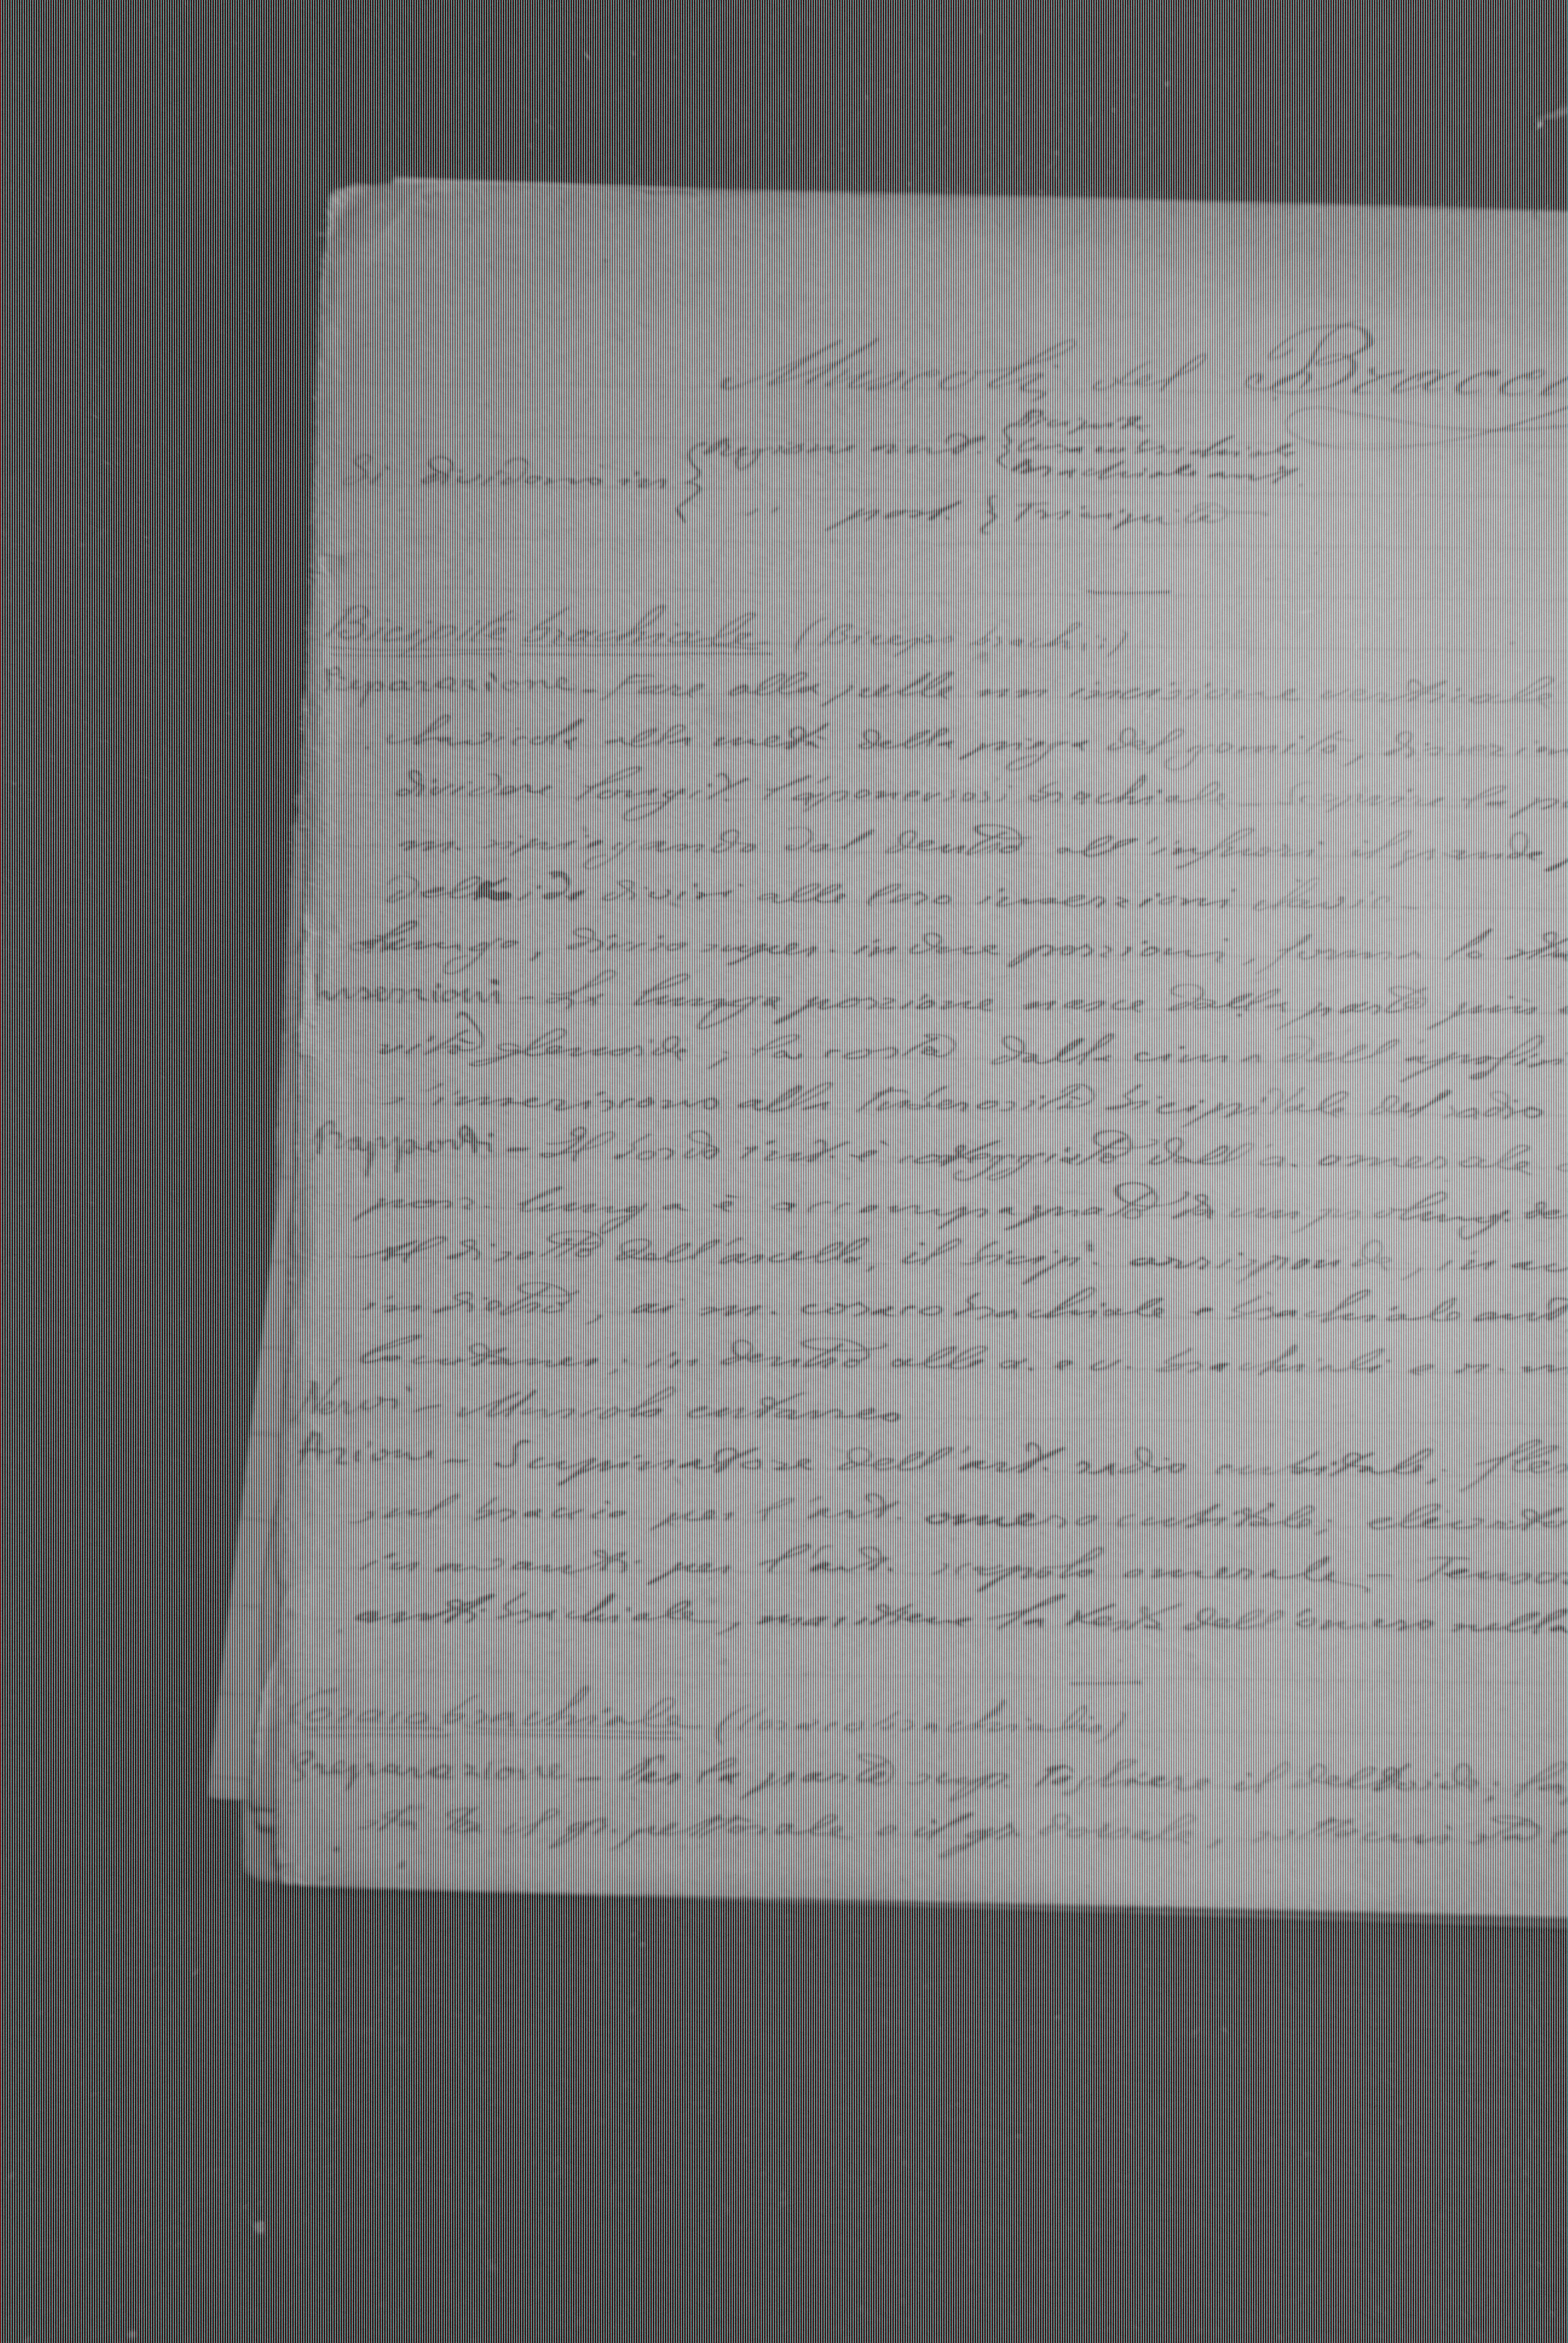 Muscoli del Bracc
Si dividono in { Regione ant. { Bicipite
Coracobrachiale
Brachiale ant.
" post. { Tricipite
Bicipite brachiale (Biceps brachii)
Preparazione - Fare alla pelle un incisione verticale
clavicola alla metà della piega del gomito,
dividere longit. l'aponevrosi brachiale - Seguire la
m. ripiegando dal dentro all'infuori il grande
Deltoide divisi alle loro inserzioni clavic.
Lungo, diviso super. in due porzioni, forma lo
Inserzioni - La lunga porzione nasce dalla parte più
vità glenoide; la corta dalla cima dell'apofisi
s'inseriscono alla tuberosità bicipitale del radio
Rapporti - Il bordo int. è costeggiato dall'a. omerale
porz. lunga è accompagnata da un prolung. de
Al disotto dell'ascella, il bicip. corrisponde, in
indietro, ai m. coracobrachiale e brachiale ant
lo cutaneo; in dentro alle a. e v. brachiali e n.
Nervi - Muscolo cutaneo
Azione - Supinatore dell'art. radio cubitale; fles
sul braccio per l'art. omero cubitale; elevat
in avanti per l'art. scapolo omerale - Tensor
antibrachiale, mantiene la testa dell'omero nella
Coracobrachiale (Coracobrachialis)
Preparazione - Per la parte sup. togliere il deltoide;
sta tra il gr. pettorale e il gr. dorsale,